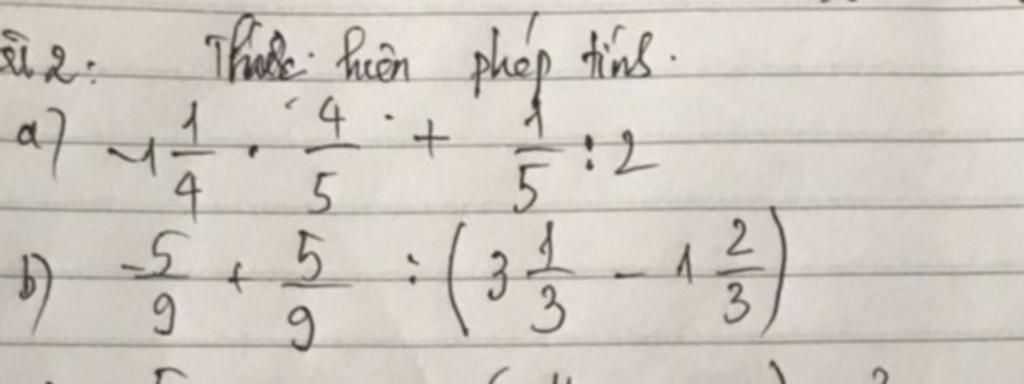 Bài 2: Thực hiện phép tính.
a) -1 1/4 . 4/5 + 1/5 : 2
b) -5/9 + 5/9 : (3 1/3 - 1 2/3)